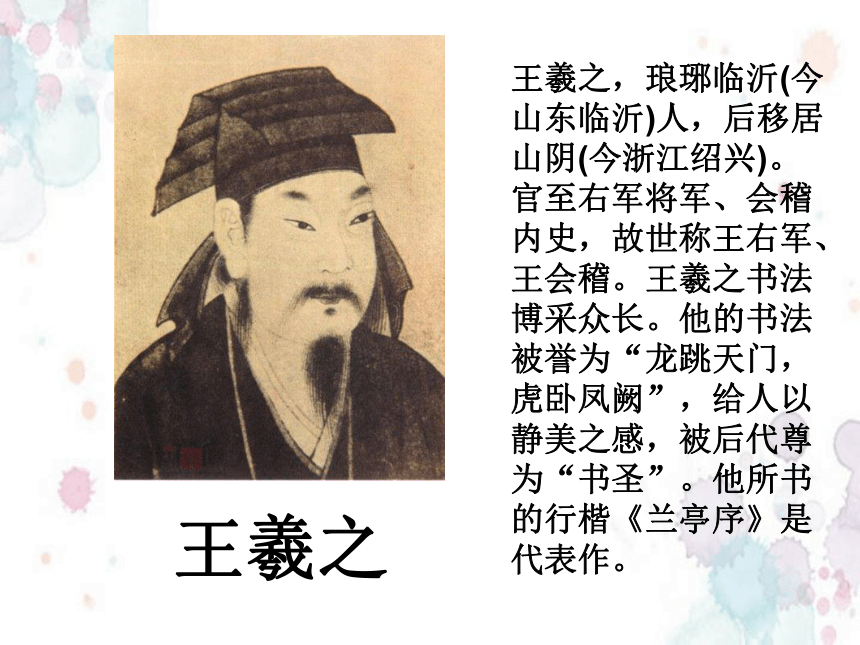 王羲之，琅琊临沂(今
山东临沂)人，后移居
山阴(今浙江绍兴)。
官至右军将军、会稽
内史，故世称王右军、
王会稽。王羲之书法
博采众长。他的书法
被誉为“龙跳天门，
虎卧凤阙”，给人以
静美之感，被后代尊
为“书圣”。他所书
的行楷《兰亭序》是
代表作。
王羲之